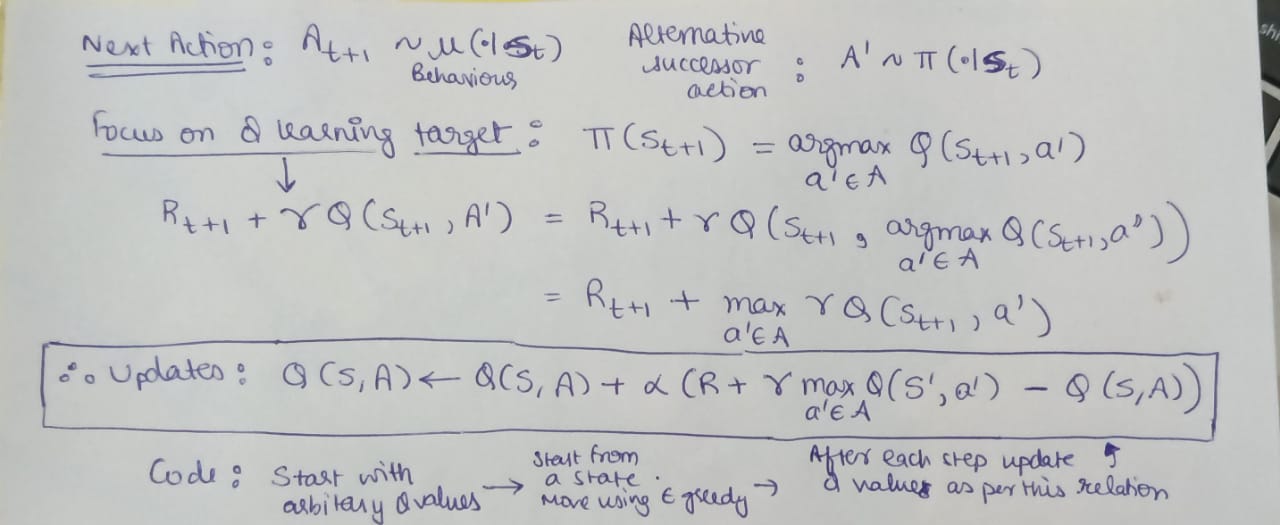 Next Action: A_{t+1} ~ μ(·|S_t) Alternative successor action : A' ~ π(·|S_t)
Behaviour
Focus on Q learning target: π(S_{t+1}) = argmax_{a'∈A} Q(S_{t+1}, a')
↓
R_{t+1} + γQ(S_{t+1}, A') = R_{t+1} + γQ(S_{t+1}, argmax_{a'∈A} Q(S_{t+1}, a'))
= R_{t+1} + max_{a'∈A} γQ(S_{t+1}, a')
∴ Updates: Q(S,A) ← Q(S,A) + α(R + γ max_{a'∈A} Q(S',a') − Q(S,A))
Code: Start with arbitary Q values → Start from a state. Move using ε greedy → After each step update Q values as per this relation ↑
shi